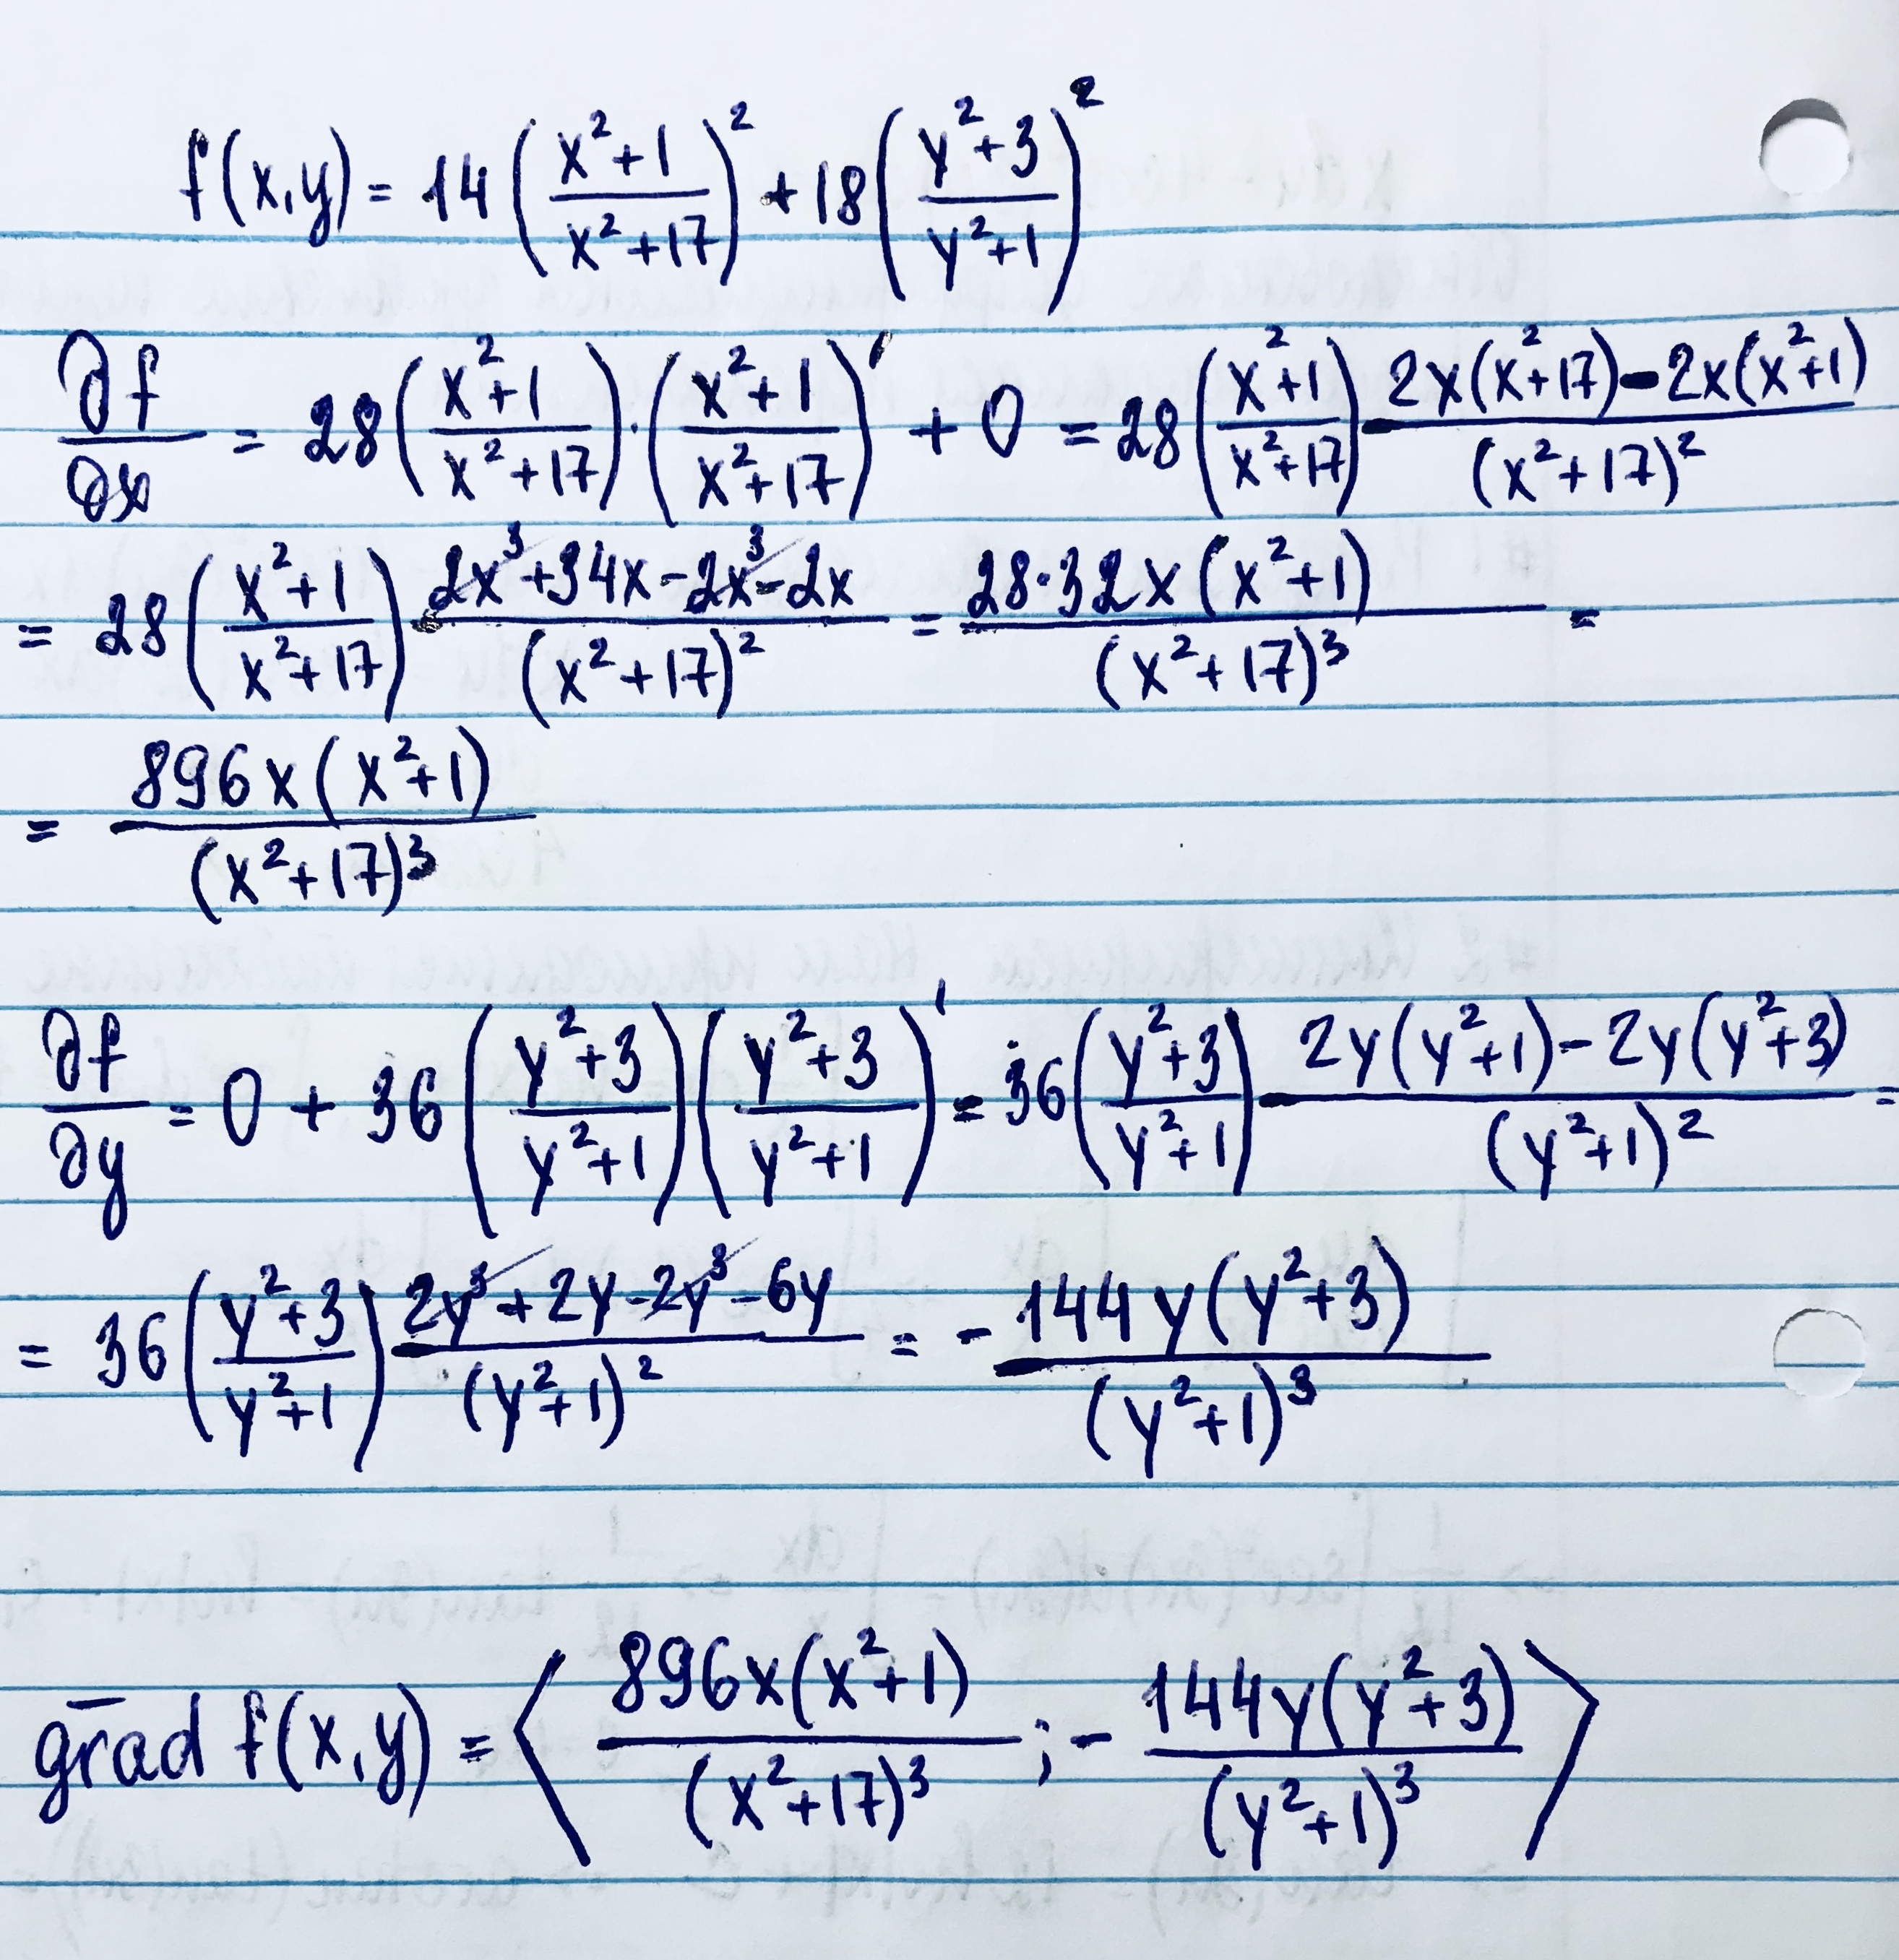 f(x,y) = 14 ( (x²+1)/(x²+17) )² + 18 ( (y²+3)/(y²+1) )²
∂f/∂x = 28 ( (x²+1)/(x²+17) ) · ( (x²+1)/(x²+17) )' + 0 = 28 ( (x²+1)/(x²+17) ) (2x(x²+17) - 2x(x²+1))/(x²+17)²
= 28 ( (x²+1)/(x²+17) ) (2x³+34x-2x³-2x)/(x²+17)² = 28·32x(x²+1)/(x²+17)³ =
= 896x(x²+1)/(x²+17)³
∂f/∂y = 0 + 36 ( (y²+3)/(y²+1) ) ( (y²+3)/(y²+1) )' = 36 ( (y²+3)/(y²+1) ) (2y(y²+1) - 2y(y²+3))/(y²+1)² =
= 36 ( (y²+3)/(y²+1) ) (2y³+2y-2y³-6y)/(y²+1)² = - 144y(y²+3)/(y²+1)³
grad f(x,y) = ⟨ 896x(x²+1)/(x²+17)³ ; - 144y(y²+3)/(y²+1)³ ⟩